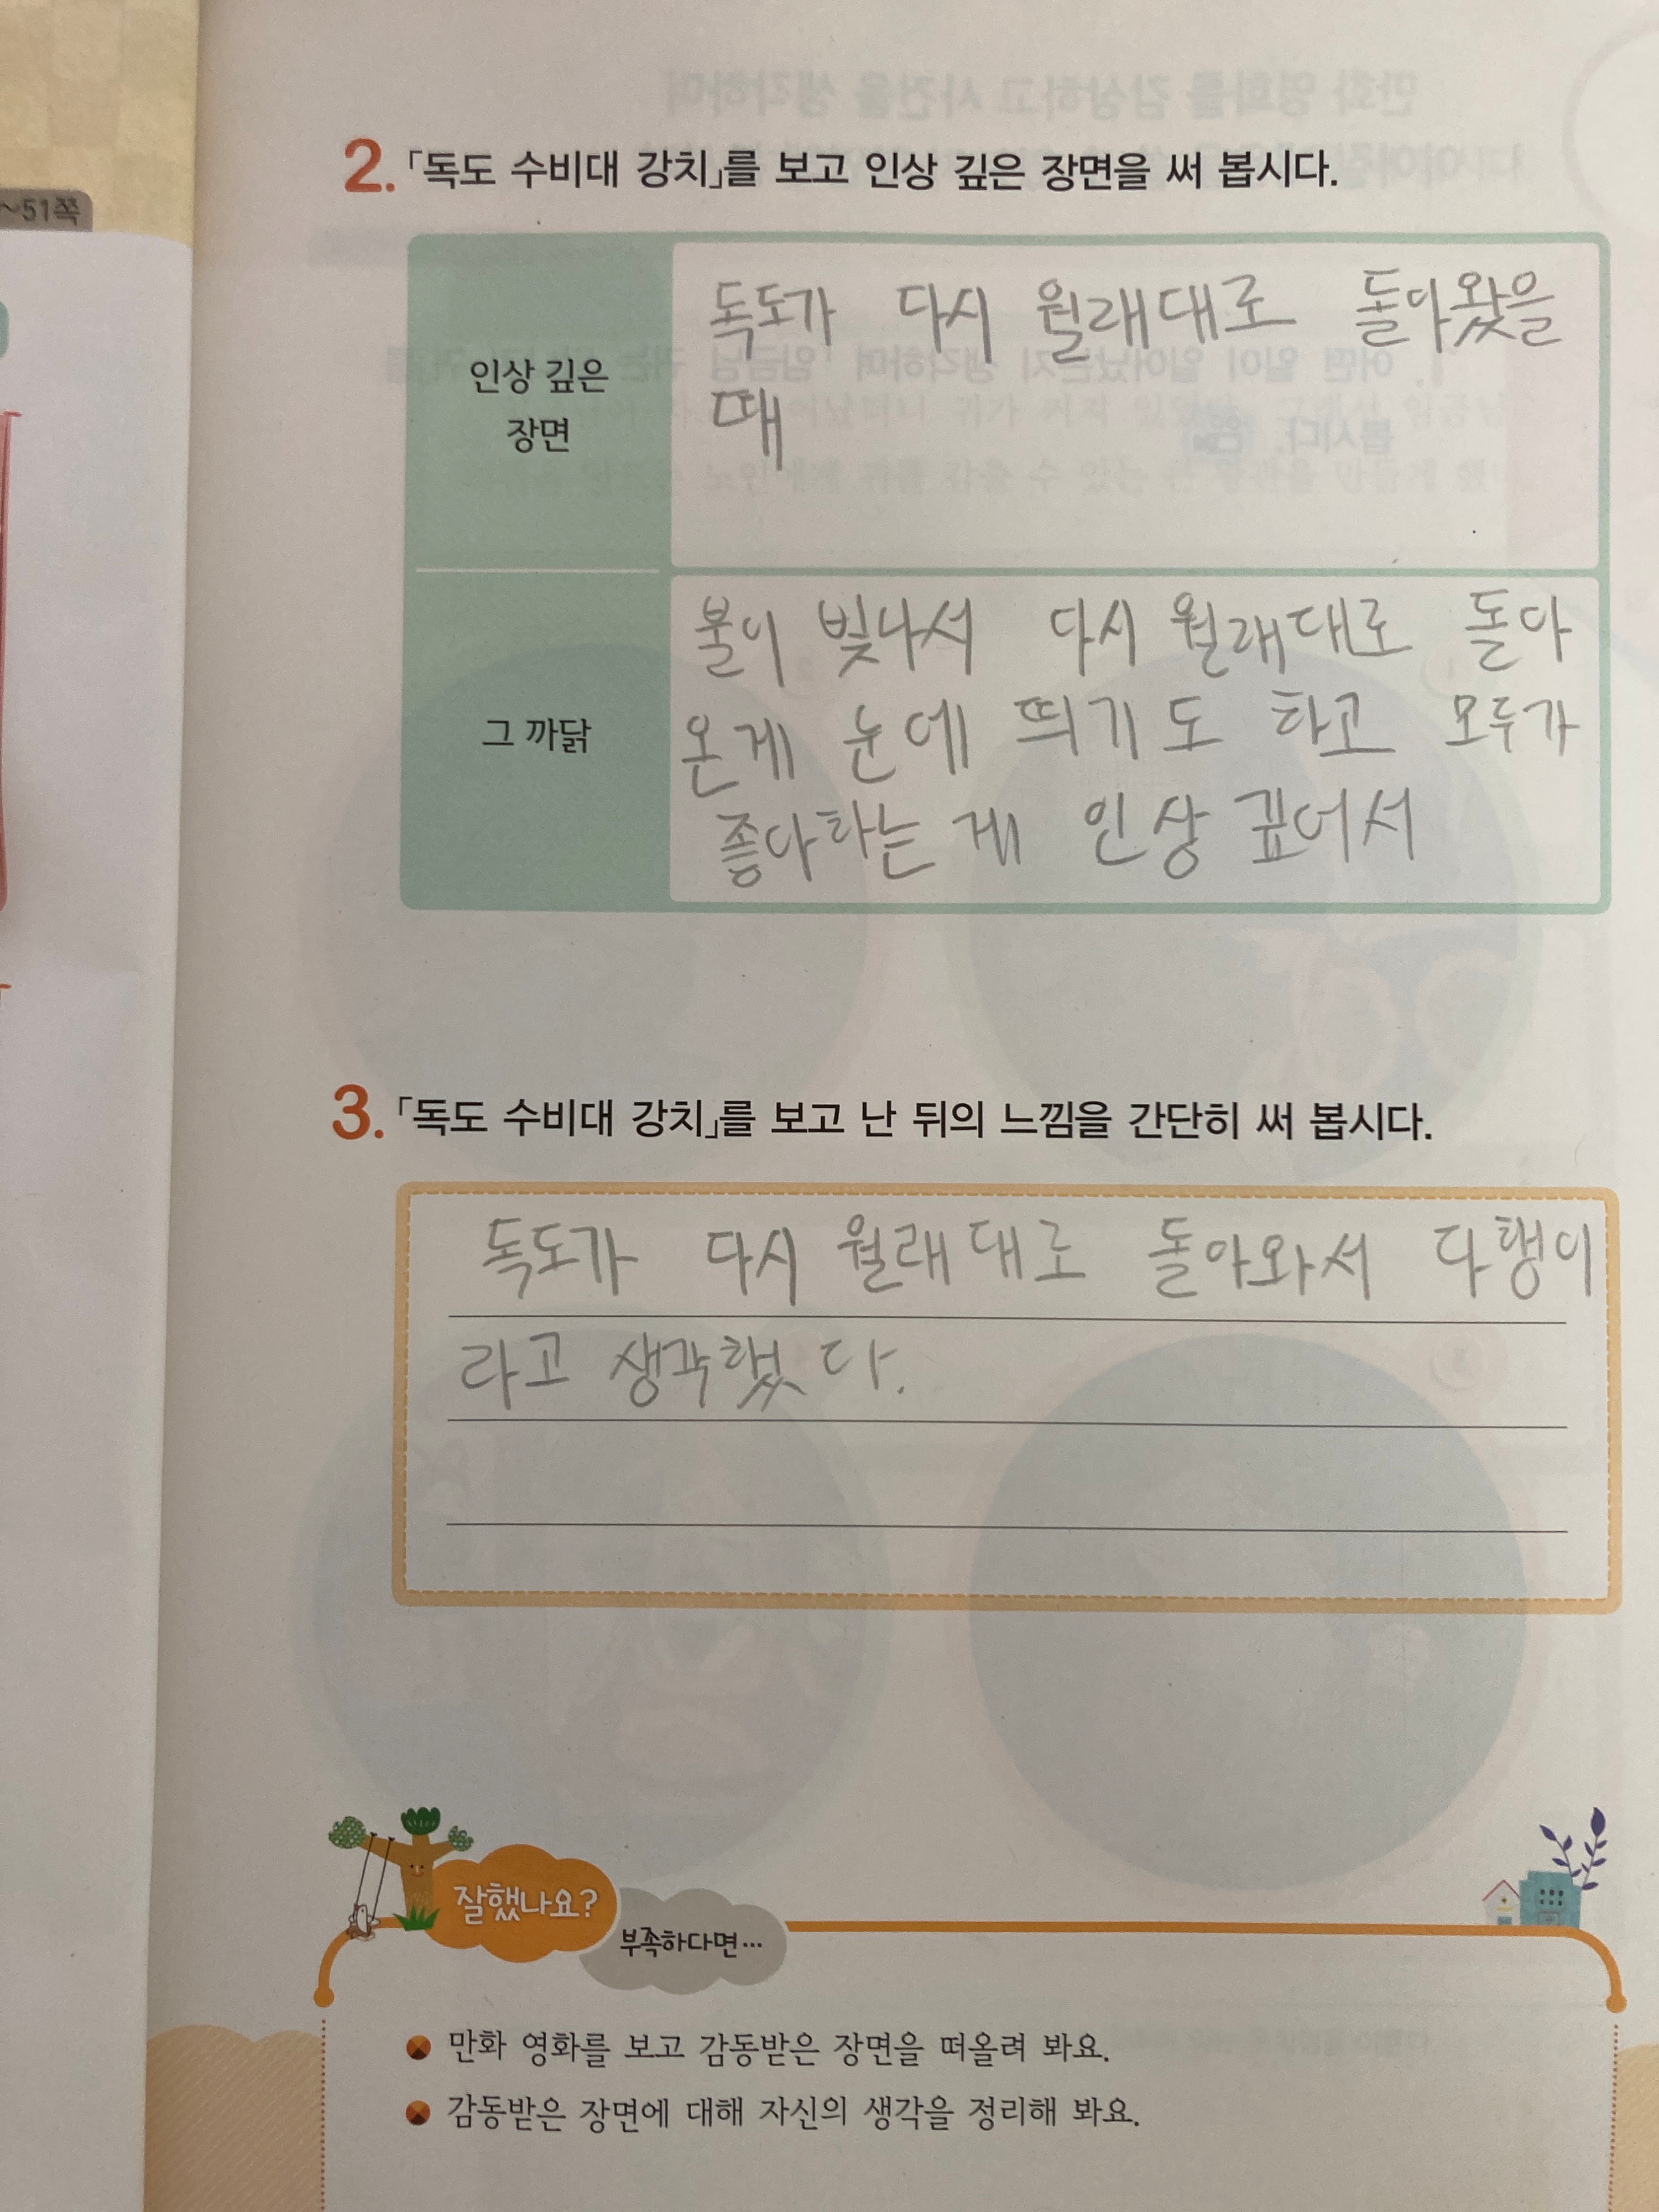 ~51쪽
2. 「독도 수비대 강치」를 보고 인상 깊은 장면을 써 봅시다.
인상 깊은
장면
독도가 다시 월래대로 돌아왔을
때
그 까닭
불이 빛나서 다시 월래대로 돌아
온게 눈에 띄기도 하고 모두가
좋아하는 게 인상 깊어서
3. 「독도 수비대 강치」를 보고 난 뒤의 느낌을 간단히 써 봅시다.
독도가 다시 월래대로 돌아와서 다행이
라고 생각했다.
잘했나요?
부족하다면…
만화 영화를 보고 감동받은 장면을 떠올려 봐요.
감동받은 장면에 대해 자신의 생각을 정리해 봐요.